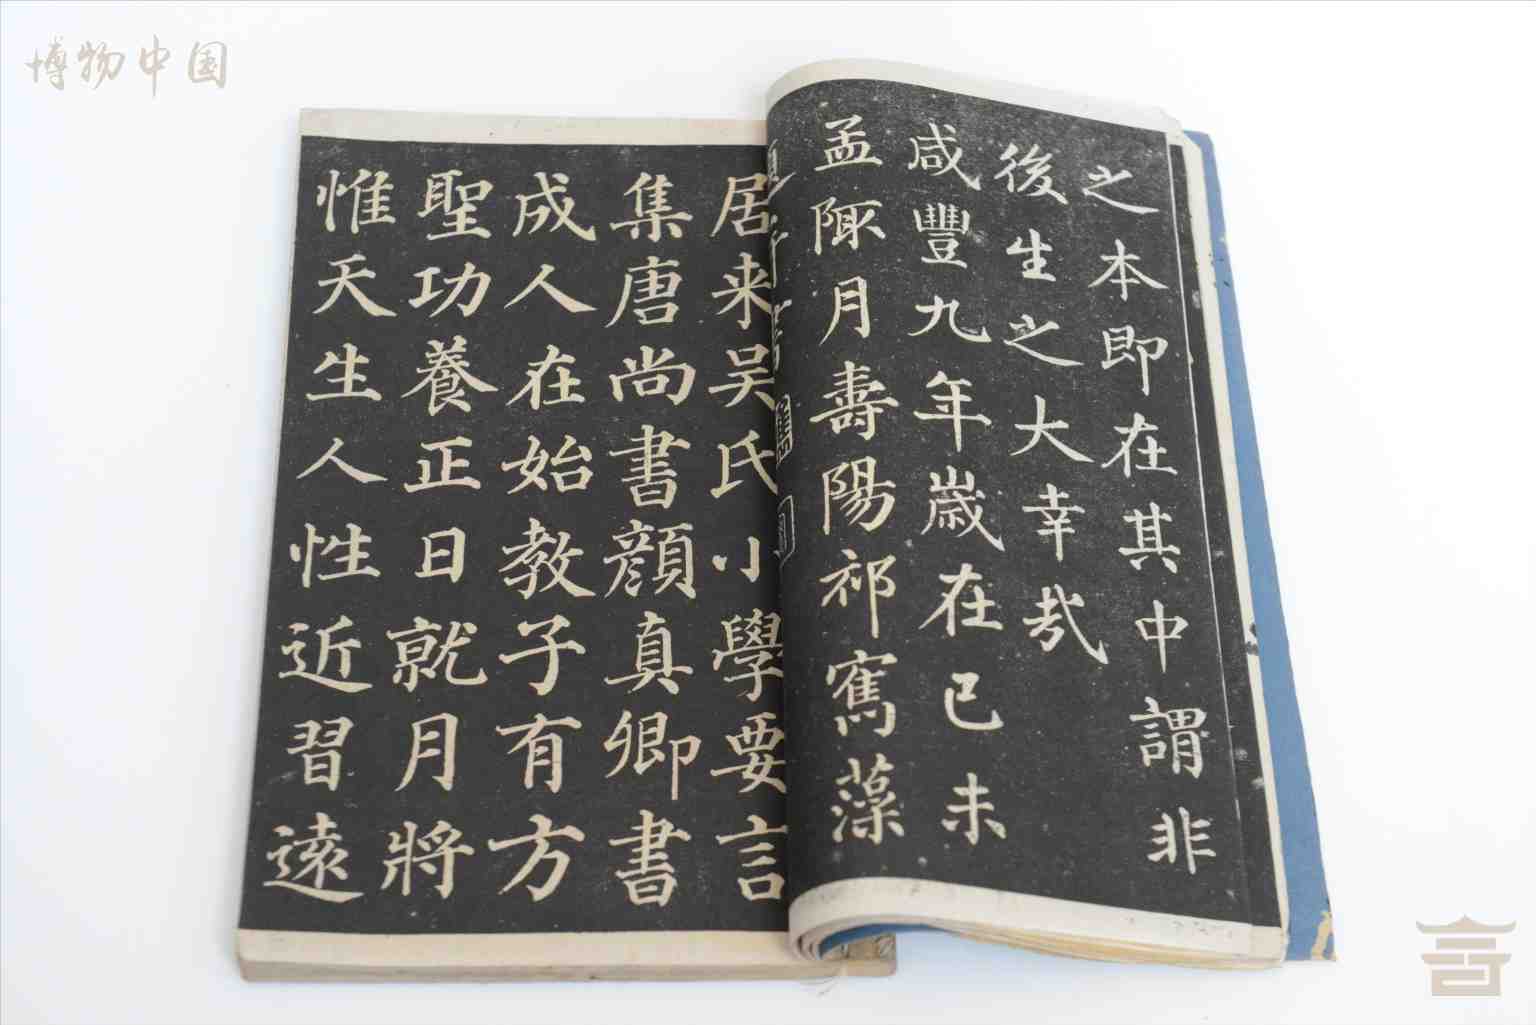 博物中国
之本即在其中謂非
後生之大幸哉
咸豐九年歲在己未
孟陬月壽陽祁寯藻
居来吴氏小學要言
集唐尚書顔真卿書
成人在始教子有方
聖功養正日就月將
惟天生人性近習遠